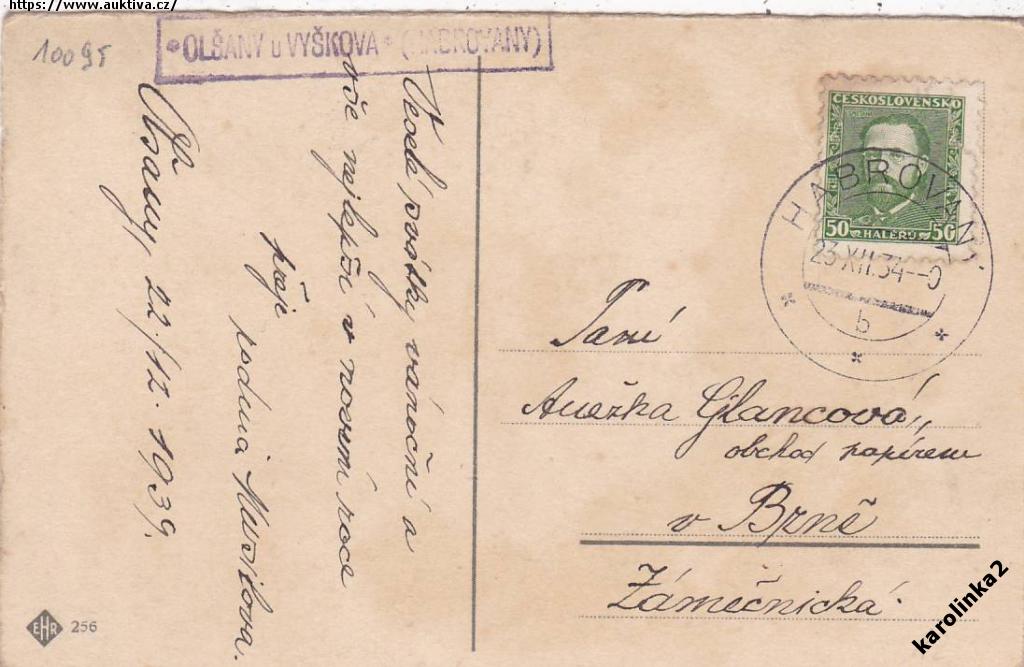 https://www.auktiva.cz/
10095
*OLŠANY u VYŠKOVA* (HABROVANY)
Veselé svátky vánoční a
vše nejlepší v novém roce
přeje
rodina Musilova.
Olšany, 22./12. 1934.
ČESKOSLOVENSKO
50 HALÉŘŮ 50
HABROVANY
23.XII.34--0
b
Paní
Anežka Glancová,
obchod papírem
v Brně
Zámečnická.
EHR 256
karolinka2